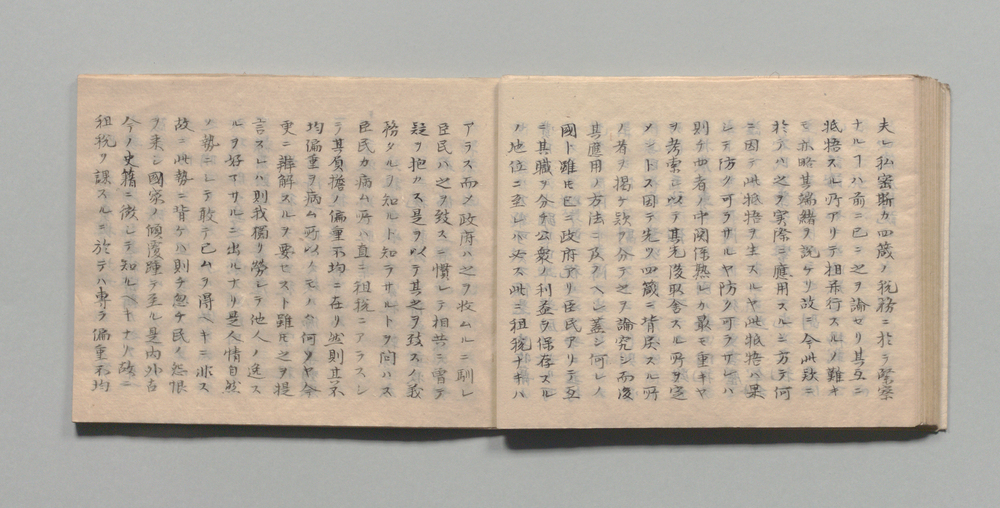 夫レ私密斯カ四箴ノ税務ニ於ラ緊察
ナルヿハ前ニ已ニ之ヲ論セリ其互ニ
牴牾スル所アリテ相並行スルノ難キ
モ亦略其端緒ヲ説ケリ故ニ今此款ニ
於テハ之ヲ実際ニ應用スルニ方テ何
ニ因テ此牴牾ヲ生スルヤ此牴牾ハ果
シテ防ク可ラサルヤ防ク可ラサレハ
則チ四者ノ中関係熟レカ最モ重キヤ
ヲ考索シ以テ其先後取舎スル所ヲ定
メントス因テ先ツ四箴ニ背戻スル所
ノ者ヲ掲ケ款ヲ分テ之ヲ論究シ而後
其應用ノ方法ニ及フヘシ蓋シ何レノ
國ト雖モ已ニ政府アリ臣民アリテ互
ニ其職ヲ分チ公衆ノ利益ヲ保存スル
ノ地位ニ至レハ必ス此ニ租税ナキハ
アラス而メ政府ハ之ヲ收ムルニ馴レ
臣民ハ之ヲ致スニ慣レテ相共ニ曽テ
疑ヲ抱カス是ヲ以テ其之ヲ致スノ義
務タルヲ知ルト知ラサルトヲ問ハス
臣民カ病ム所ハ直ニ租税ニアラスシ
テ其負擔ノ偏重不均ニ在リ然則其不
均偏重ヲ病ム所以ノモノハ何ソヤ今
更ニ辨解スルヲ要セスト雖モ之ヲ提
言スレハ則我獨リ勞レテ他人ノ逸ス
ルヲ好マサルニ出ルナリ是人情自然
ノ勢ニシテ敢テ已ムヲ得ヘキニ非ス
故ニ此勢ニ背ケハ則チ忽チ民ノ怨恨
ヲ来シ國家ノ傾覆踵テ至ル是内外古
今ノ史籍ニ徴シテ知ルヘキナリ故ニ
租税ヲ課スルニ於テハ専ラ偏重不均